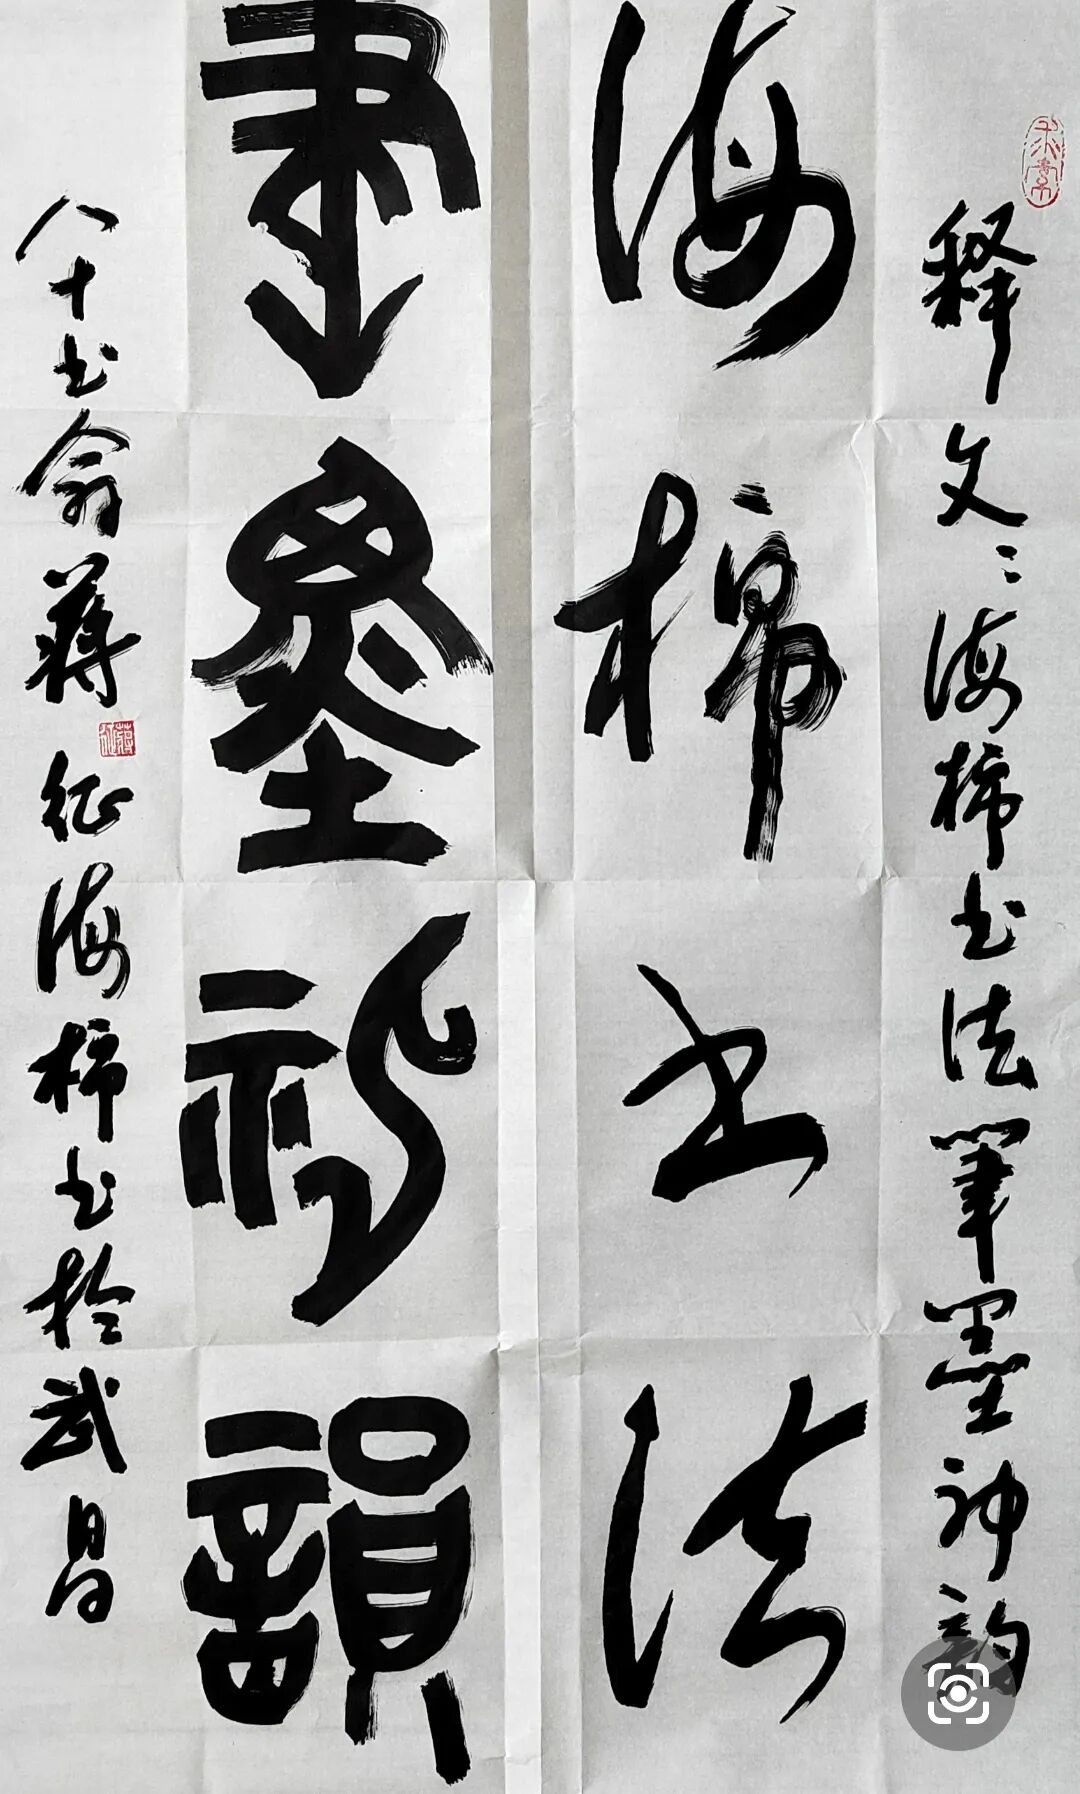 释文：海柿书法筆墨神韵
海柿书法
筆墨神韻
八十书翁蒋征海柿书於武昌